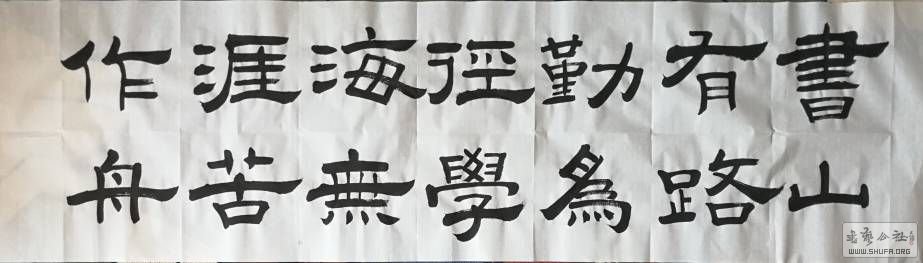 書山
有路
勤為
徑學
海無
涯苦
作舟
WWW.SHUFA.ORG